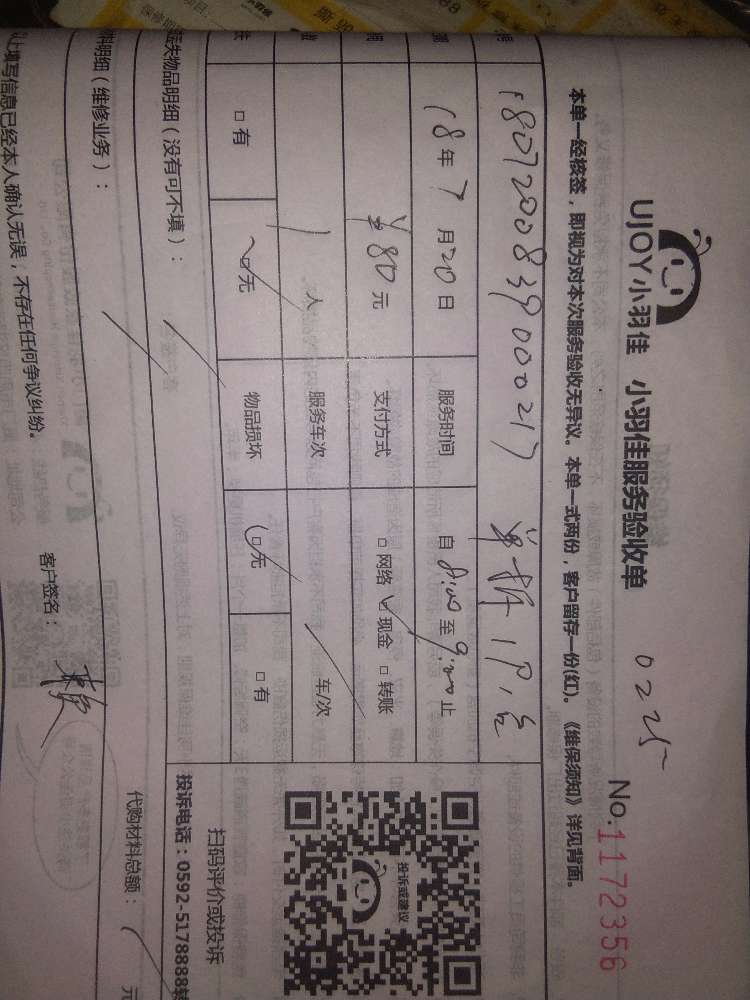 UJOY小羽佳 小羽佳服务验收单 0225
No.1172356
本单一经核签，即视为对本次服务验收无异议。本单一式两份，客户留存一份(红)。《维保须知》详见背面。
180720083900021） 单拆1P,室
18年7月20日 服务时间 自8:00至9:00止
¥80元 支付方式 □网络 ☑现金 □转账
1人 服务车次 / 车/次
□有 ☑无 物品损坏 ☑无 □有
遗失物品明细（没有可不填）： /
料明细（维修业务）： /
上填写信息已经本人确认无误，不存在任何争议纠纷。
客户签名：
投诉或建议
扫码评价或投诉
投诉电话：0592-5178888转
代购材料总额： / 元